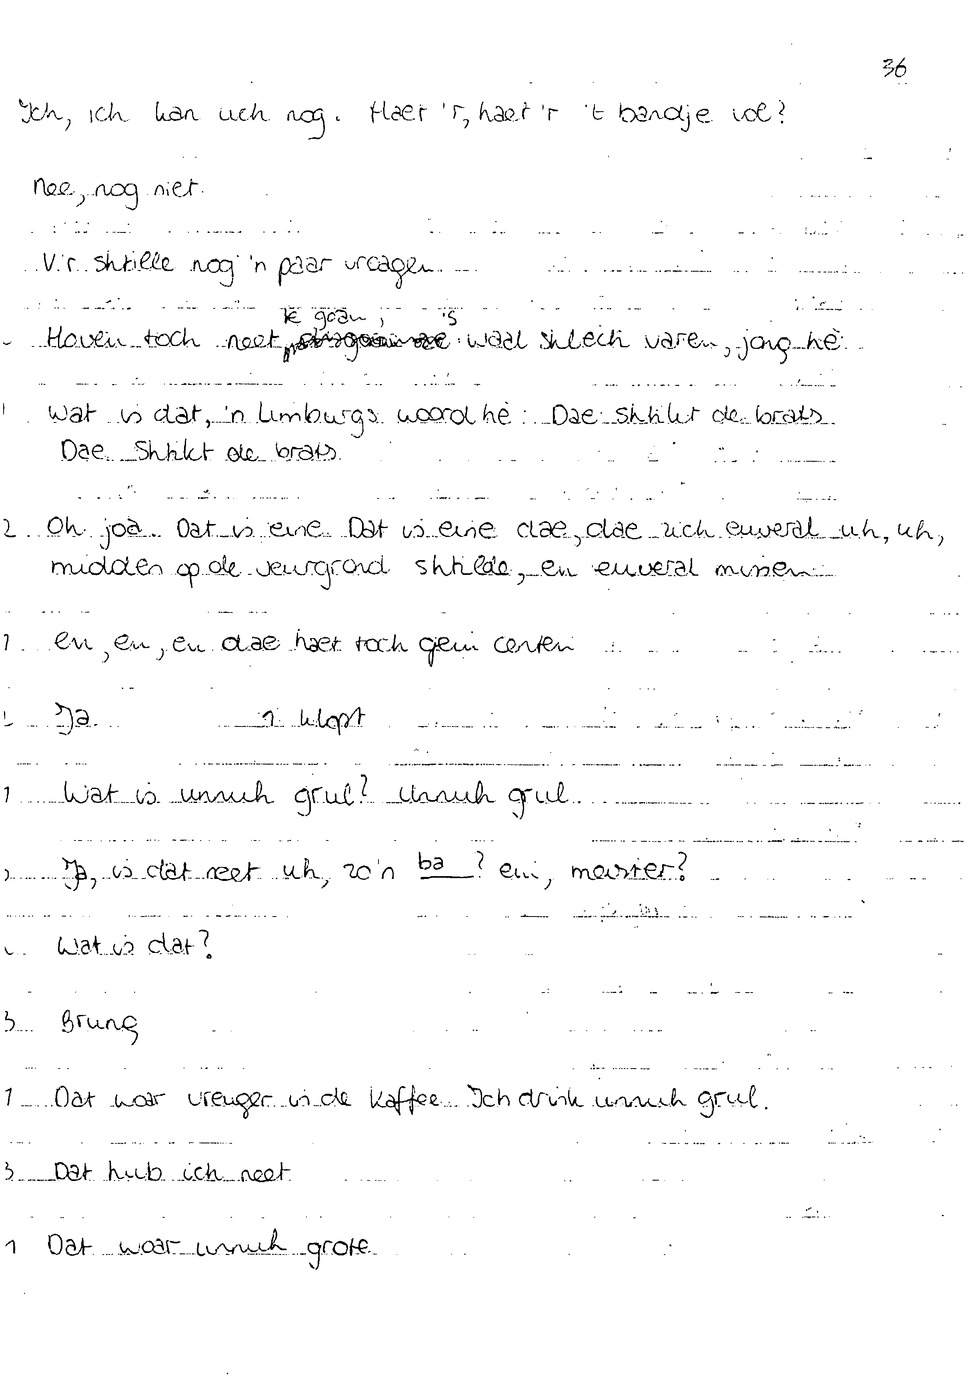 36
Ich, ich kan uch nog. Haet 'r, haet 'r 't bandje vol?
Nee, nog niet.
V.r. shtille nog 'n paar vroagen
te goan, 's
Hoven toch neet waal shlech varen, jong hè.
1 Wat is dat, 'n Limburgs woord hè: Dae shtikt de brats
Dae shtikt de brats.
2. Oh joa. Dat is eine. Dat is eine dae, dae zich euveral uh, uh,
midden op de veurgrond shtilde, en euveral
1. en, en, en dae haet toch gein centen
Ja. 1 klopt
1 Wat is unnuh grul? Unnuh grul
Ja, is dat neet uh, zo'n ba___? ein, meister?
Wat is dat?
3 Brung
1 Dat woar vreuger in de kaffee. Ich drink unnuh grul.
3 Dat hub ich neet
1 Dat woar unnuh grote